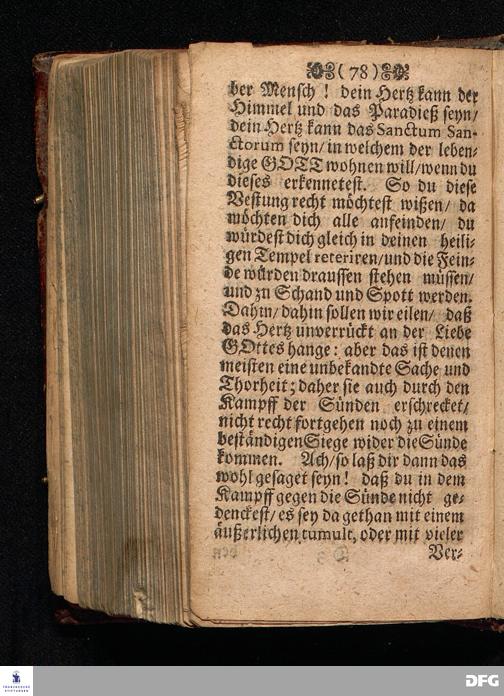 (78)
ber Mensch! dein Hertz kann der
Himmel und das Paradieß seyn/
dein Hertz kann das Sanctum San-
ctorum seyn/ in welchem der leben-
dige GOTT wohnen will/ wenn du
dieses erkennetest. So du diese
Vestung recht möchtest wißen/ da
möchten dich alle anfeinden/ du
würdest dich gleich in deinen heili-
gen Tempel reteriren/ und die Fein-
de würden draussen stehen müssen/
und zu Schand und Spott werden.
Dahin/ dahin sollen wir eilen/ daß
das Hertz unverrückt an der Liebe
GOttes hange: aber das ist denen
meisten eine unbekandte Sache und
Thorheit; daher sie auch durch den
Kampff der Sünden erschrecket/
nicht recht fortgehen noch zu einem
beständigen Siege wider die Sünde
kommen. Ach/ so laß dir dann das
wohl gesaget seyn! daß du in dem
Kampff gegen die Sünde nicht ge-
denckest/ es sey da gethan mit einem
äußerlichen tumult, oder mit vieler
Ver-
FRANCKESCHE
STIFTUNGEN
DFG